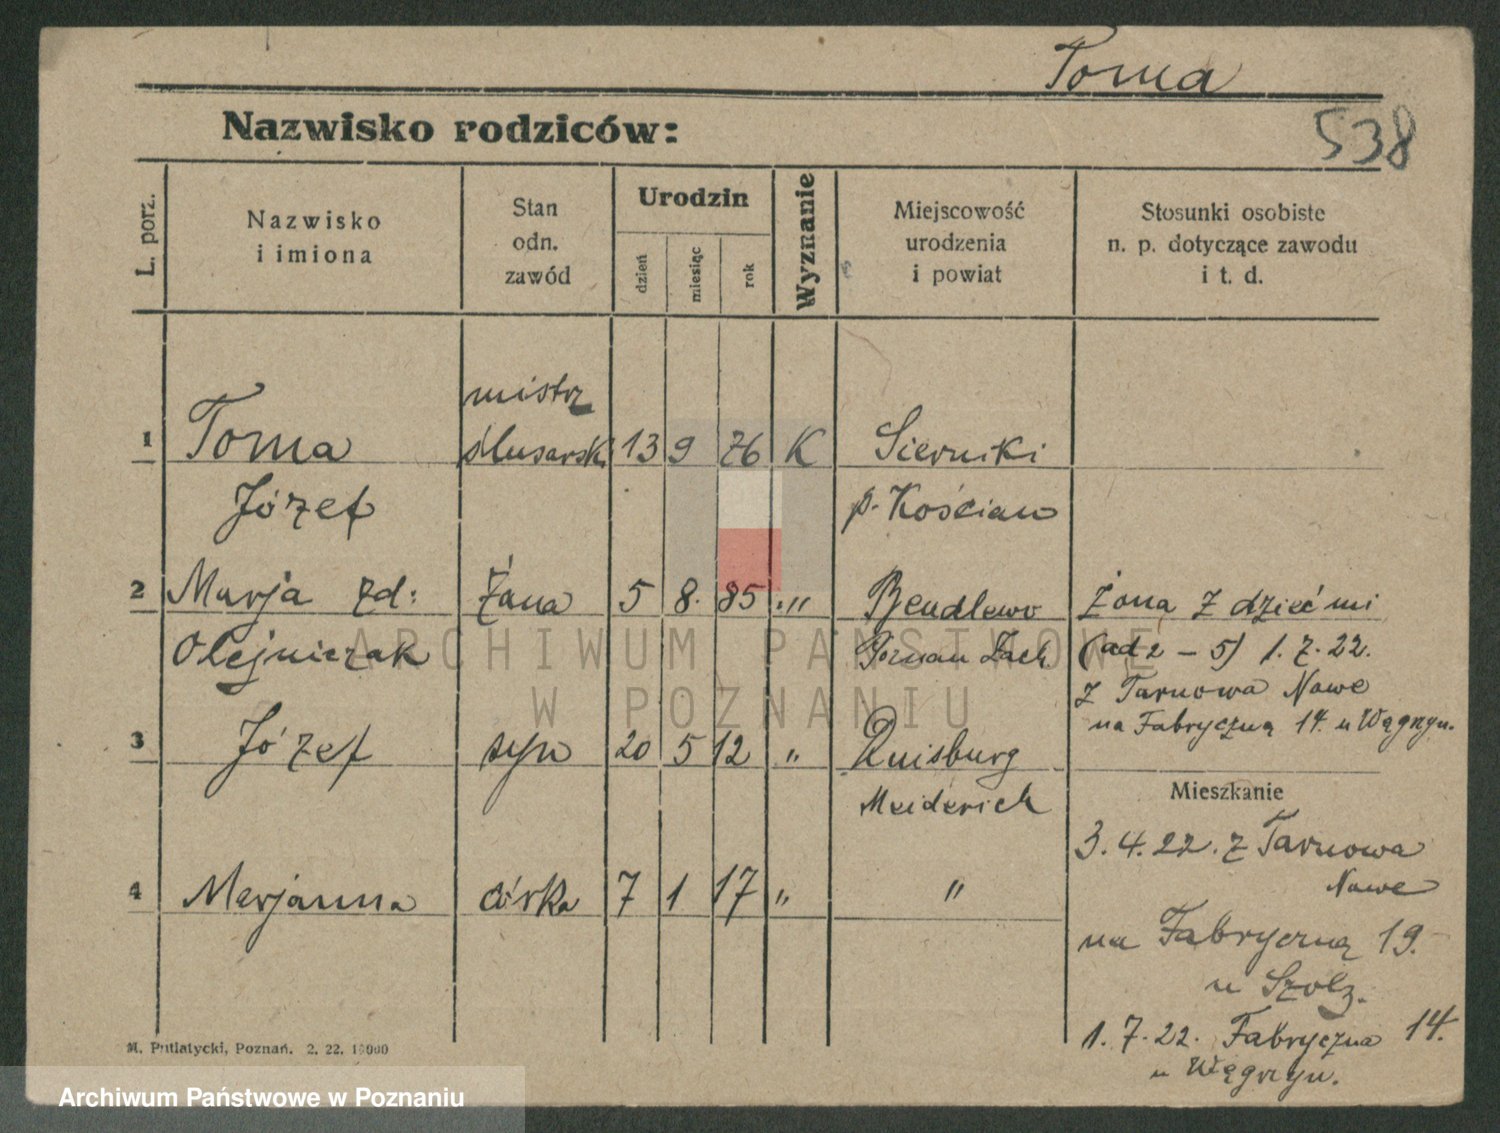 Toma
538
Nazwisko rodziców:
L. porz.
Nazwisko
i imiona
Stan
odn.
zawód
Urodzin
dzień
miesiąc
rok
Wyznanie
Miejscowość
urodzenia
i powiat
Stosunki osobiste
n. p. dotyczące zawodu
i t. d.
mistrz
1 Toma ślusarsk. 13 9 76 K Sierniki
Józef p. Kościan
2 Marja zd: Żona 5 8. 85 " Bendlewo żona z dziećmi
Olejniczak Poznan Zach (ad 2 – 5) 1.7.22.
z Tarnowa Nowe
na Fabryczną 14. u Węgrzyn.
3 Józef syn 20 5 12 " Duisburg
Meiderich
Mieszkanie
3.4.22. z Tarnowa
Nowe
4 Marjanna córka 7 1 17 " "
na Fabryczną 19.
u Szolz.
1.7.22. Fabryczna 14.
u Węgrzyn.
M. Putiatycki, Poznań. 2. 22. 10000
ARCHIWUM PAŃSTWOWE
W POZNANIU
Archiwum Państwowe w Poznaniu